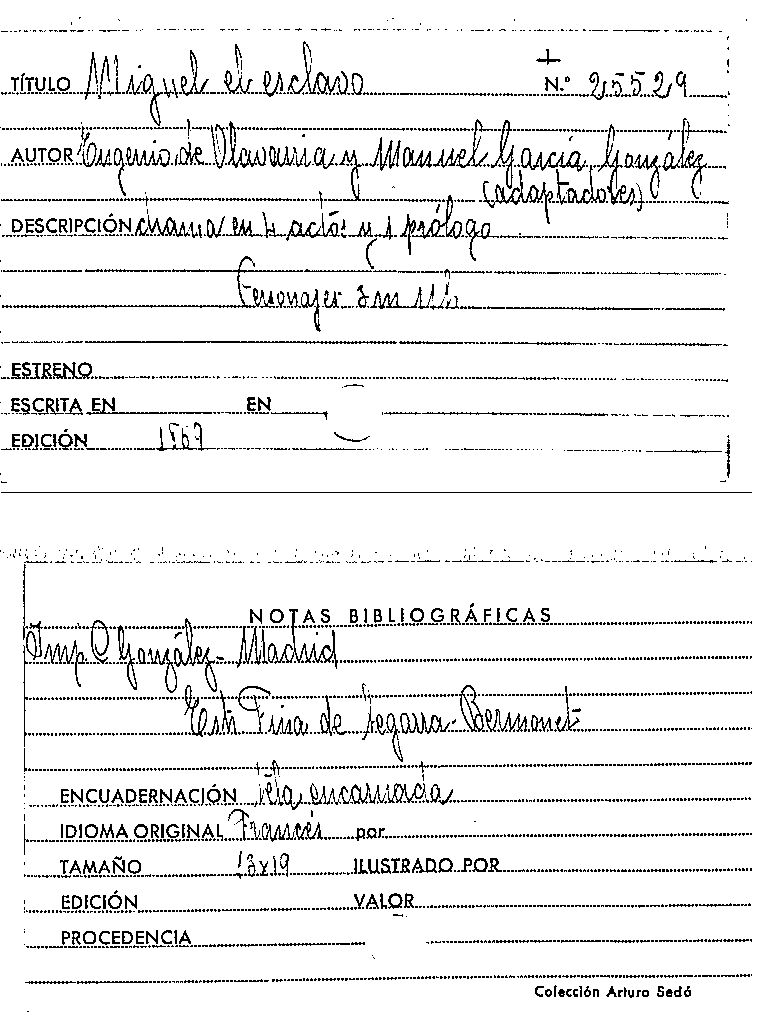 TÍTULO Miguel el esclavo N.º 25529
AUTOR Eugenio de Olavarria y Manuel García González
(adaptadores)
DESCRIPCIÓN drama en 4 actos y 1 prólogo
Personajes
ESTRENO
ESCRITA EN EN
EDICIÓN 1867
NOTAS BIBLIOGRÁFICAS
Imp C González - Madrid
de Segarra - Bermonet
ENCUADERNACIÓN tela encarnada
IDIOMA ORIGINAL Francés por
TAMAÑO 13x19 ILUSTRADO POR
EDICIÓN VALOR
PROCEDENCIA
Colección Arturo Sedó